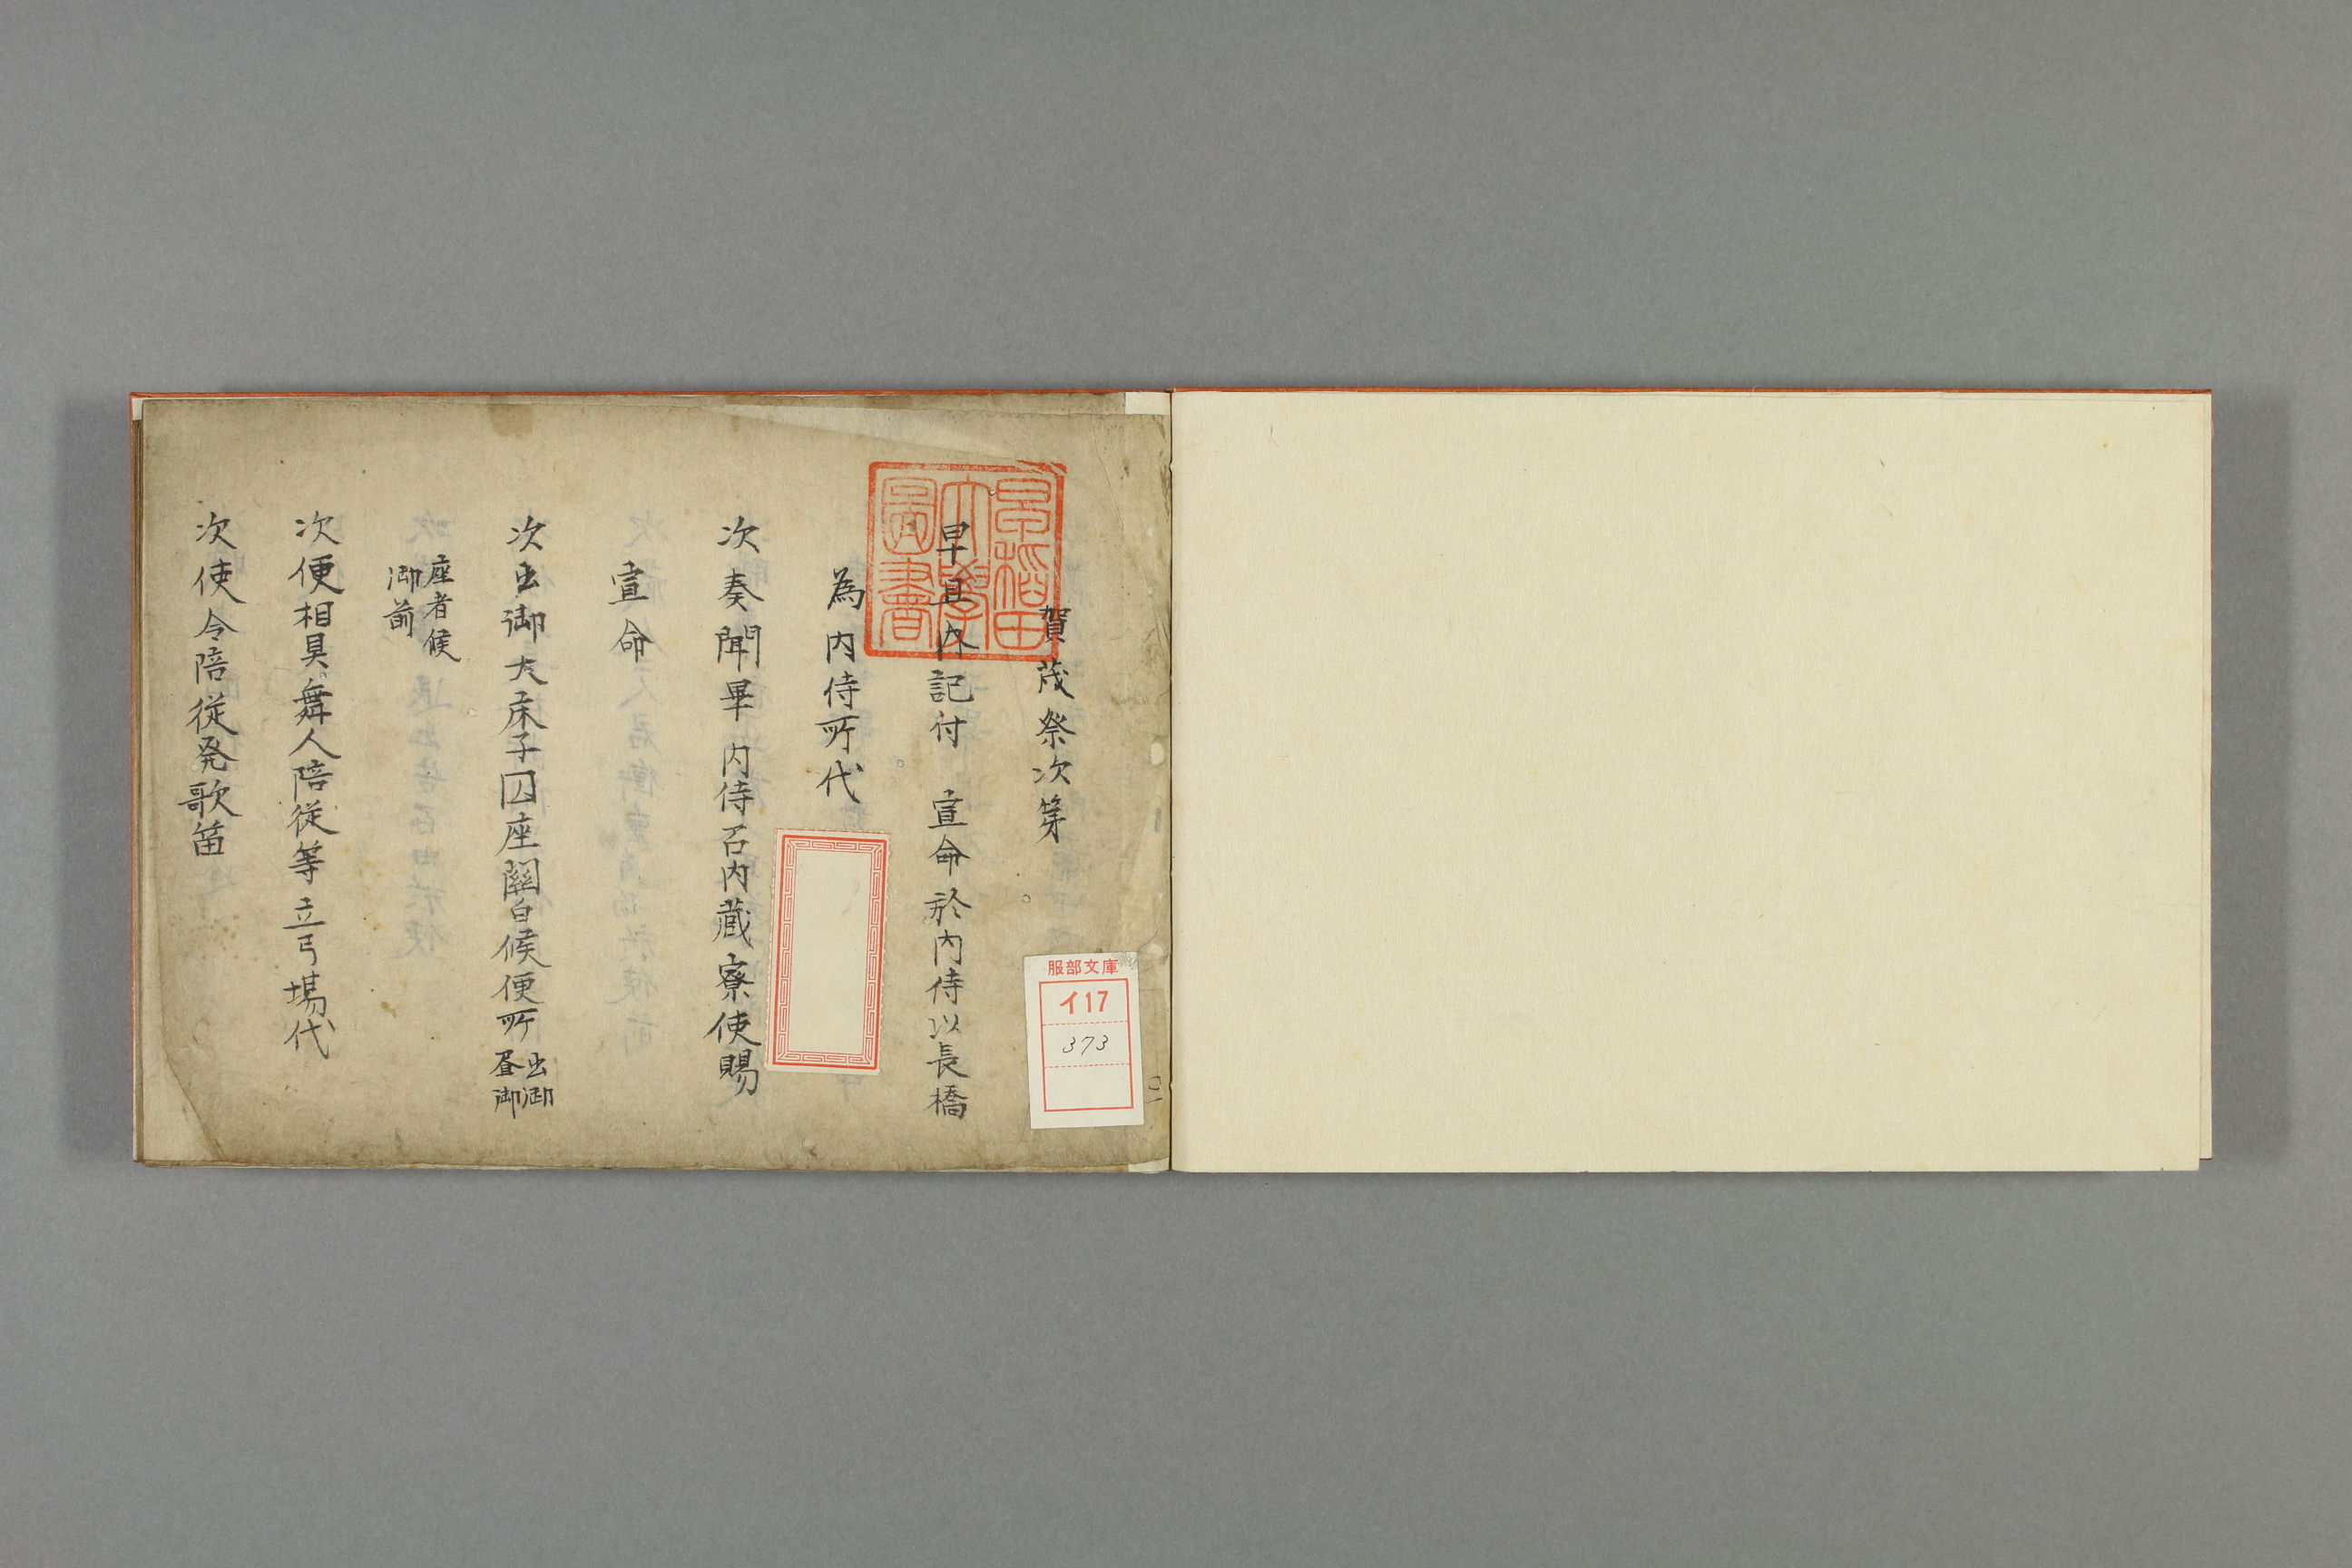 賀茂祭次第
早旦内記付 宣命於内侍以長橋
為内侍所代
次奏聞畢内侍召内蔵寮使賜
宣命
次出御大床子囚座關白候便所出御昼御
座者候御前
次使相具舞人陪従等立弓場代
次使令陪従発歌笛
早稲田
大學
圖書
服部文庫
イ17
373